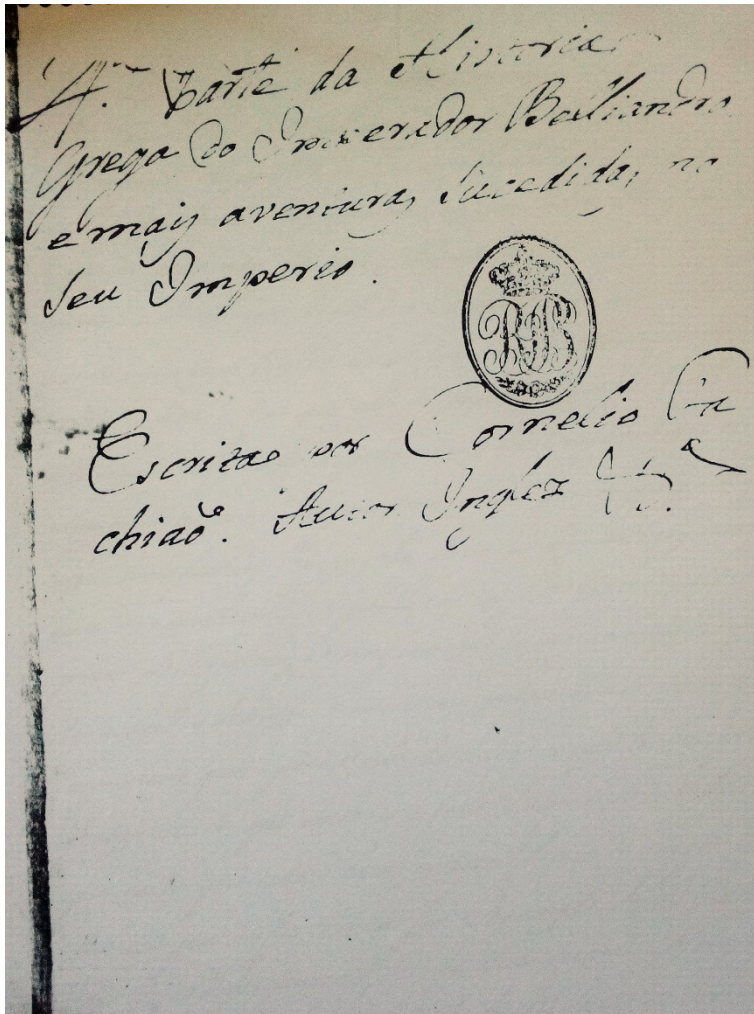 4.ª Parte da Historia
Grega do Imperador Belliandro
e mais aventuras sucedidas no
seu Imperio.
RB
Escrita por Cornelio
chiaõ. Autor Inglez